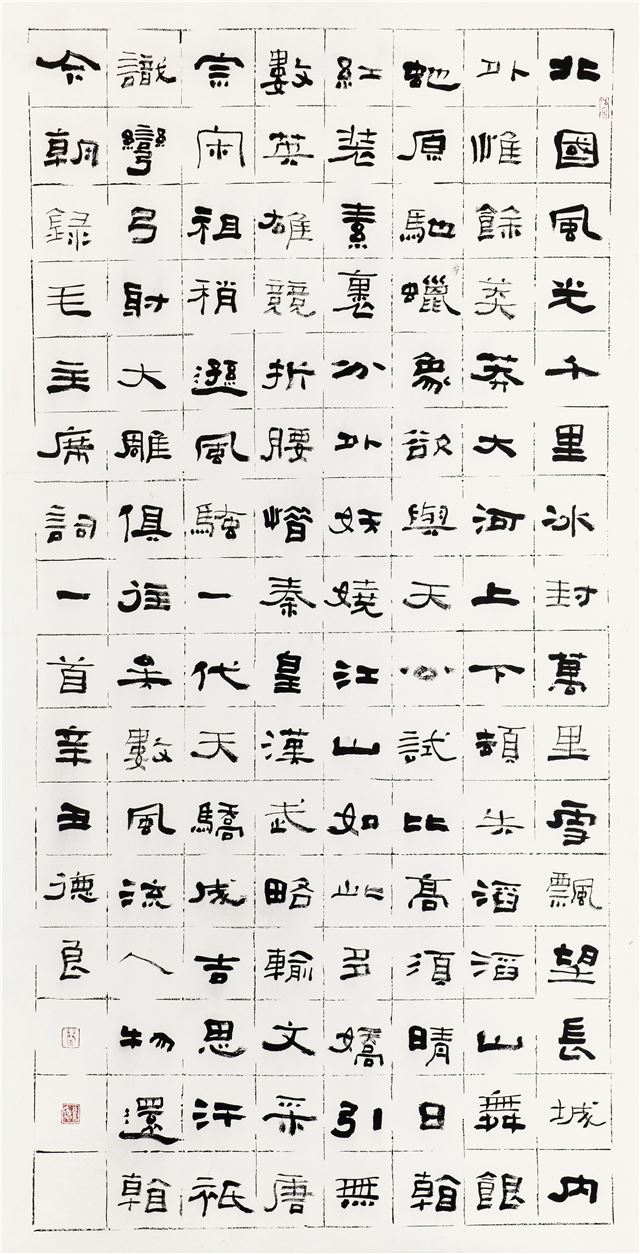 北國風光千里冰封萬里雪飄望長城内
外惟餘莽莽大河上下頓失滔滔山舞銀
虵原馳蠟象欲與天公試比高須晴日看
紅裝素裹分外妖嬈江山如此多嬌引無
數英雄競折腰惜秦皇漢武略輸文采唐
宗宋祖稍遜風騷一代天驕成吉思汗祇
識彎弓射大雕俱往矣數風流人物還看
今朝録毛主席詞一首辛丑德良